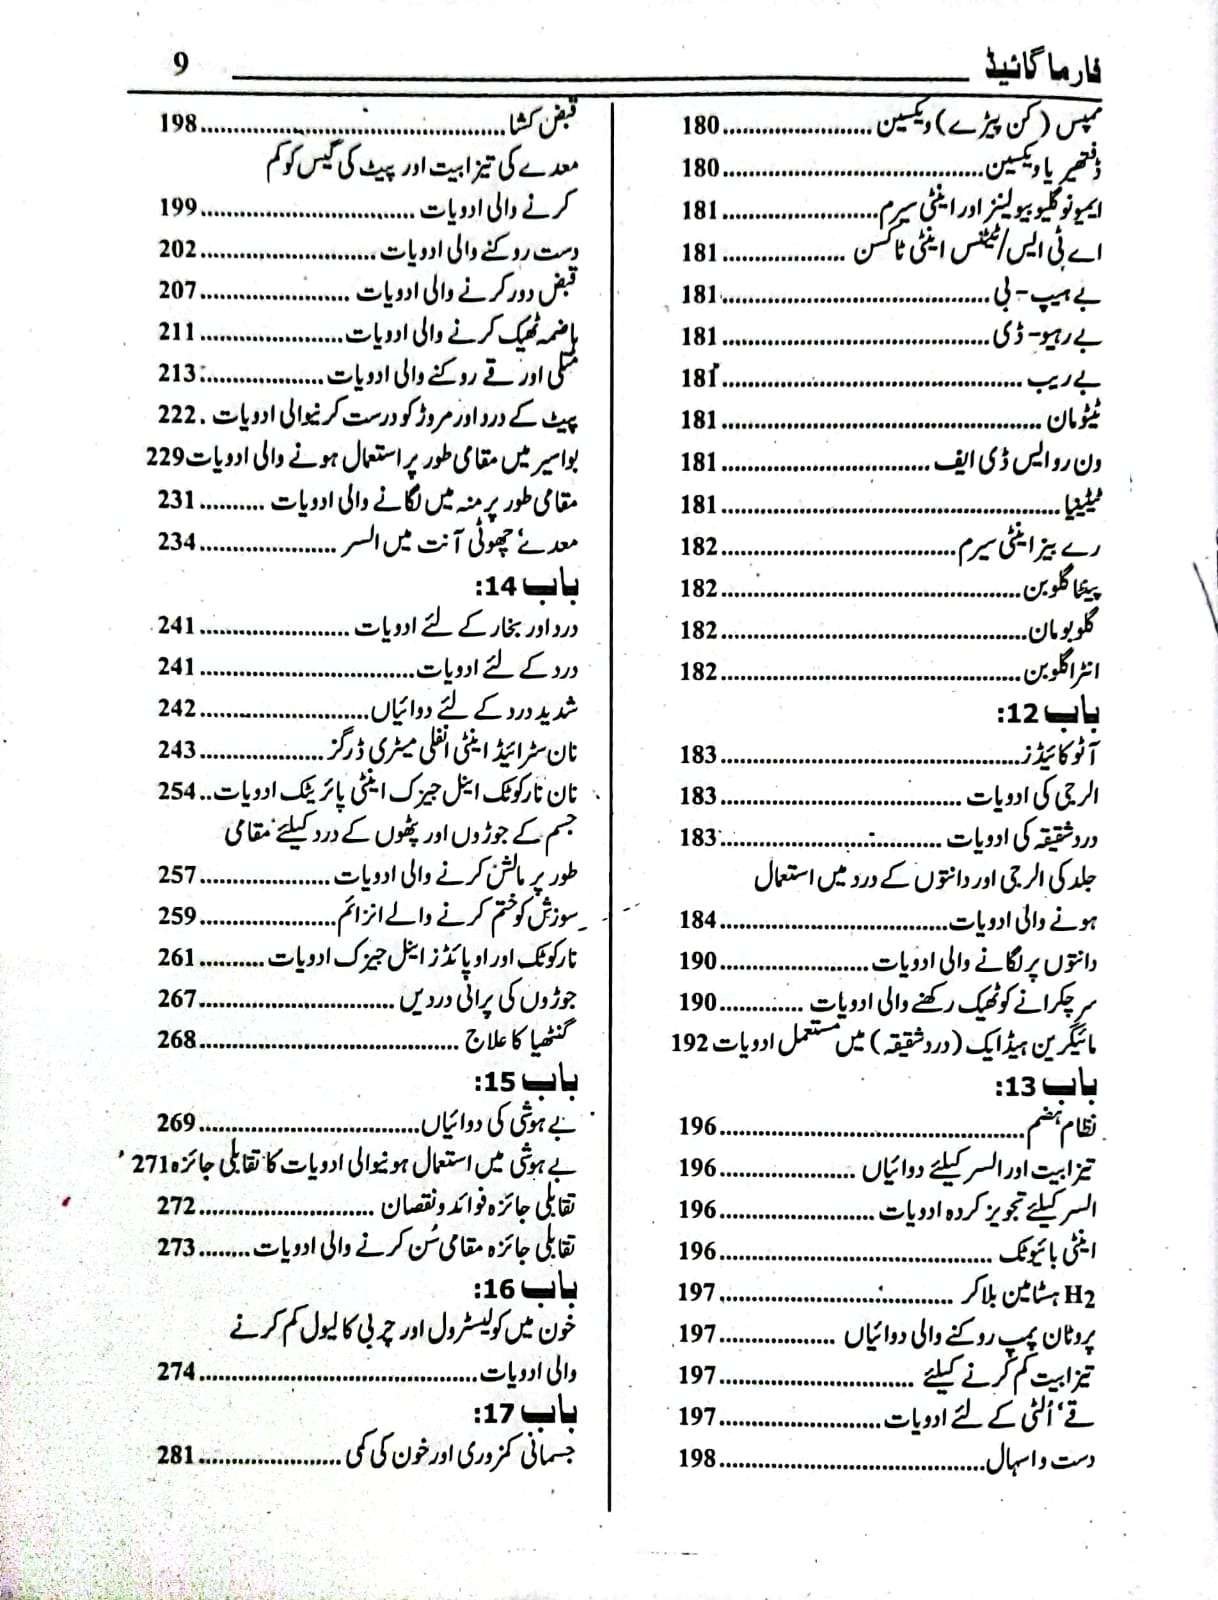 فارما گائیڈ 9
ممپس (کن پیڑے) ویکسین.....................180
ڈفتھیریا ویکسین.....................180
ایمونوگلیوبیولینز اور اینٹی سیرم.....................181
اے ٹی ایس/ٹیٹنس اینٹی ٹاکسن .....................181
بے ہیپ - بی.....................181
بے رہیو- ڈی.....................181
بے ریب .....................181
ٹیٹومان.....................181
ون رو ایس ڈی ایف .....................181
ٹیٹینیا.....................181
رے بیز اینٹی سیرم.....................182
پینٹا گلوبن.....................182
گلوبومان.....................182
انٹرا گلوبن.....................182
باب 12:
آٹو کائیڈز.....................183
الرجی کی ادویات .....................183
درد شقیقہ کی ادویات .....................183
جلد کی الرجی اور دانتوں کے درد میں استعمال
ہونے والی ادویات.....................184
دانتوں پر لگانے والی ادویات.....................190
سر چکرانے کو ٹھیک رکھنے والی ادویات ............190
مائیگرین ہیڈ ایک (درد شقیقہ) میں مستعمل ادویات 192
باب 13:
نظام ہضم.....................196
تیزابیت اور السر کیلئے دوائیاں .....................196
السر کیلئے تجویز کردہ ادویات .....................196
اینٹی بائیوٹک .....................196
H2 ہسٹامین بلاکر .....................197
پروٹان پمپ روکنے والی دوائیاں ...............197
تیزابیت کم کرنے کیلئے .....................197
قے، اُلٹی کے لئے ادویات.....................197
دست و اسہال.....................198
قبض کشا.....................198
معدے کی تیزابیت اور پیٹ کی گیس کو کم
کرنے والی ادویات .....................199
دست روکنے والی ادویات .....................202
قبض دور کرنے والی ادویات .....................207
ہاضمہ ٹھیک کرنے والی ادویات.....................211
متلی اور قے روکنے والی ادویات.....................213
پیٹ کے درد اور مروڑ کو درست کرنیوالی ادویات .222
بواسیر میں مقامی طور پر استعمال ہونے والی ادویات229
مقامی طور پر منہ میں لگانے والی ادویات ..........231
معدے، چھوٹی آنت میں السر .....................234
باب 14:
درد اور بخار کے لئے ادویات .....................241
درد کے لئے ادویات.....................241
شدید درد کے لئے دوائیاں.....................242
نان سٹرائیڈ اینٹی انفلی میٹری ڈرگز.....................243
نان نارکوٹک اینل جیزک اینٹی پائریٹک ادویات..254
جسم کے جوڑوں اور پٹھوں کے درد کیلئے مقامی
طور پر مالش کرنے والی ادویات .....................257
سوزش کو ختم کرنے والے انزائم.....................259
نارکوٹک اور اوپائڈز اینل جیزک ادویات ..........261
جوڑوں کی پرانی دردیں .....................267
گنٹھیا کا علاج .....................268
باب 15:
بے ہوشی کی دوائیاں.....................269
بے ہوشی میں استعمال ہونیوالی ادویات کا تقابلی جائزہ271
تقابلی جائزہ فوائد و نقصان .....................272
تقابلی جائزہ مقامی سُن کرنے والی ادویات ........273
باب 16:
خون میں کولیسٹرول اور چربی کا لیول کم کرنے
والی ادویات.....................274
باب 17:
جسمانی کمزوری اور خون کی کمی.....................281